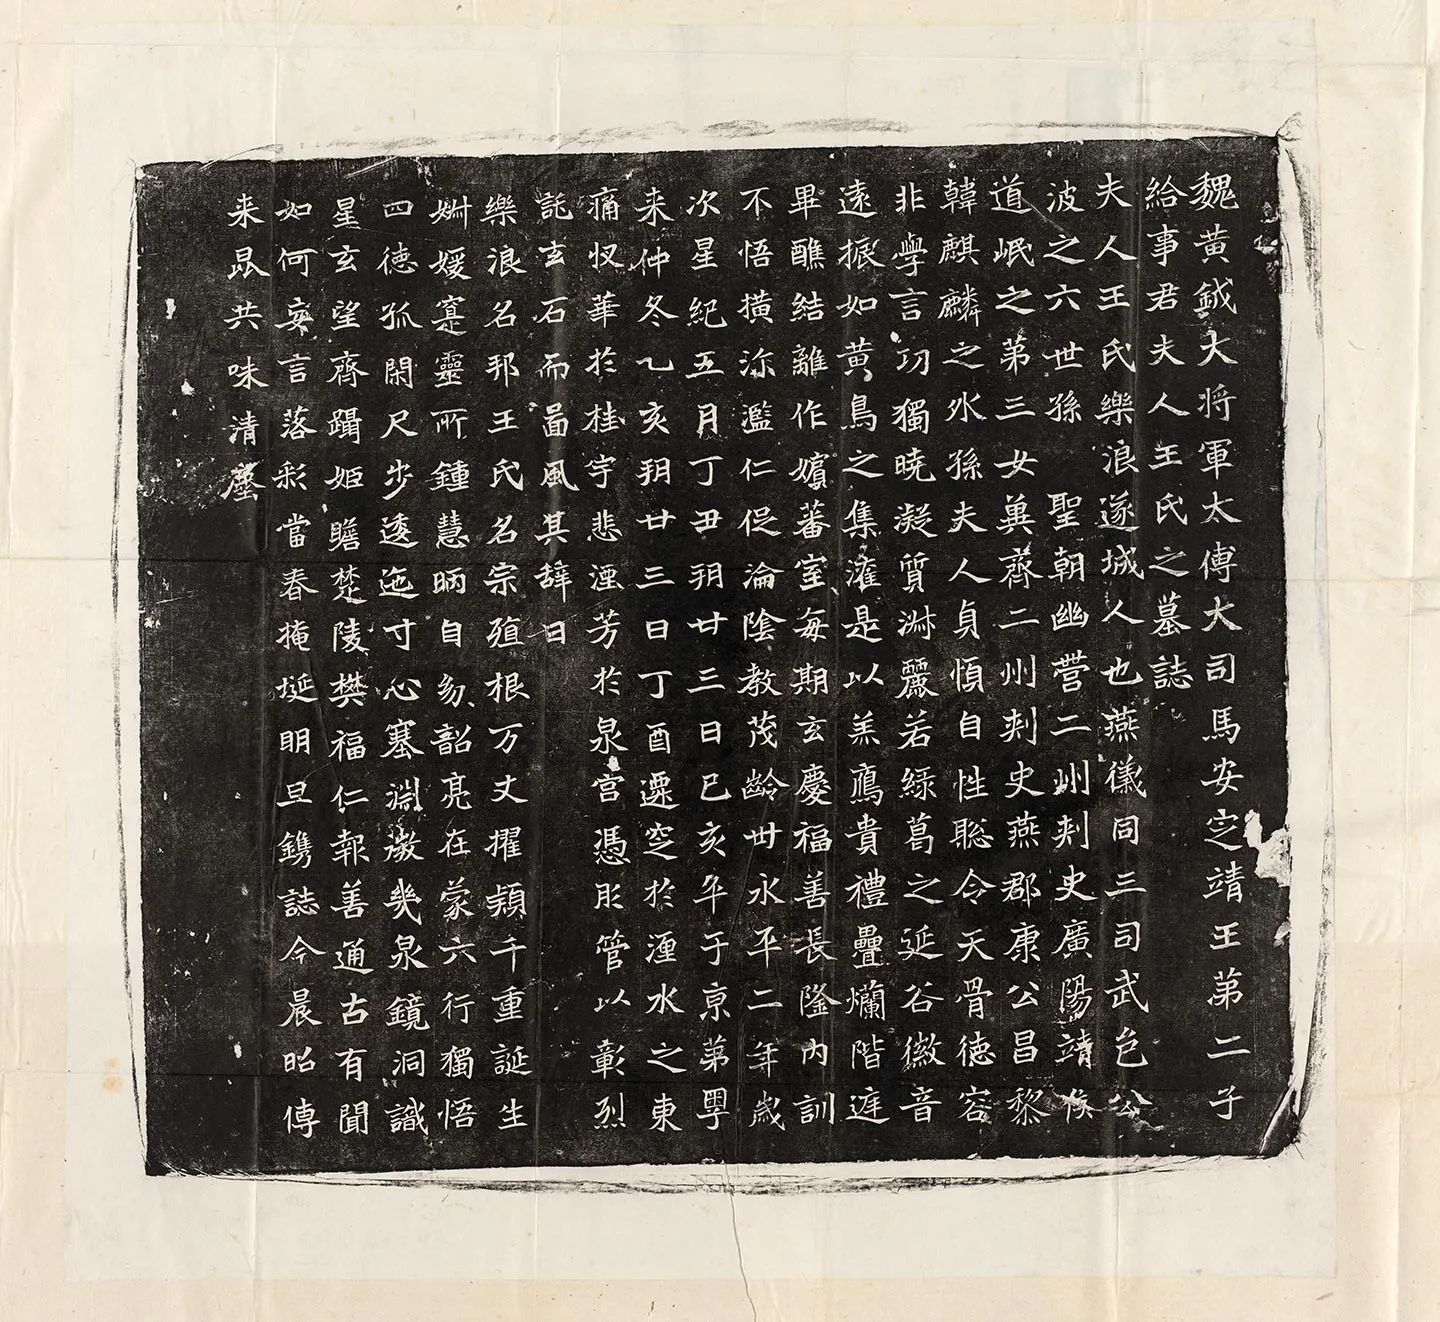 魏黄鉞大将軍太傅大司馬安定靖王第二子
給事君夫人王氏之墓誌
夫人王氏樂浪遂城人也燕儀同三司武邑公
波之六世孫 聖朝幽營二州刾史廣陽靖侯
道岷之第三女冀齊二州刾史燕郡康公昌黎
韓麒麟之外孫夫人貞慎自性聡令天骨徳容
非學言功獨曉凝質淋麗若緑葛之延谷徽音
遠振如黄鳥之集灌是以羔鴈貴禮疊爛階庭
畢醮結離作嬪蕃室每期玄慶福善長隆内訓
不悟横流濫仁促淪陰教茂齡丗永平二年歲
次星紀五月丁丑朔廿三日已亥卒于京第粤
来仲冬乙亥朔廿三日丁酉遷窆於湹水之東
痛收華於桂宇悲湮芳於泉宫憑彤管以彰烈
託玄石而啚風其辞曰
樂浪名邦王氏名宗殖根万丈擢頴千重誕生
婌媛寔靈所鍾慧晒自幼韶亮在蒙六行獨悟
四徳孤閑尺步逶迤寸心塞淵澂幾泉鏡洞識
星玄望齊躅姬瞻楚陵樊福仁報善通古有聞
如何妄言落彩當春掩埏明旦鐫誌今晨昭傳
来昆共味清塵